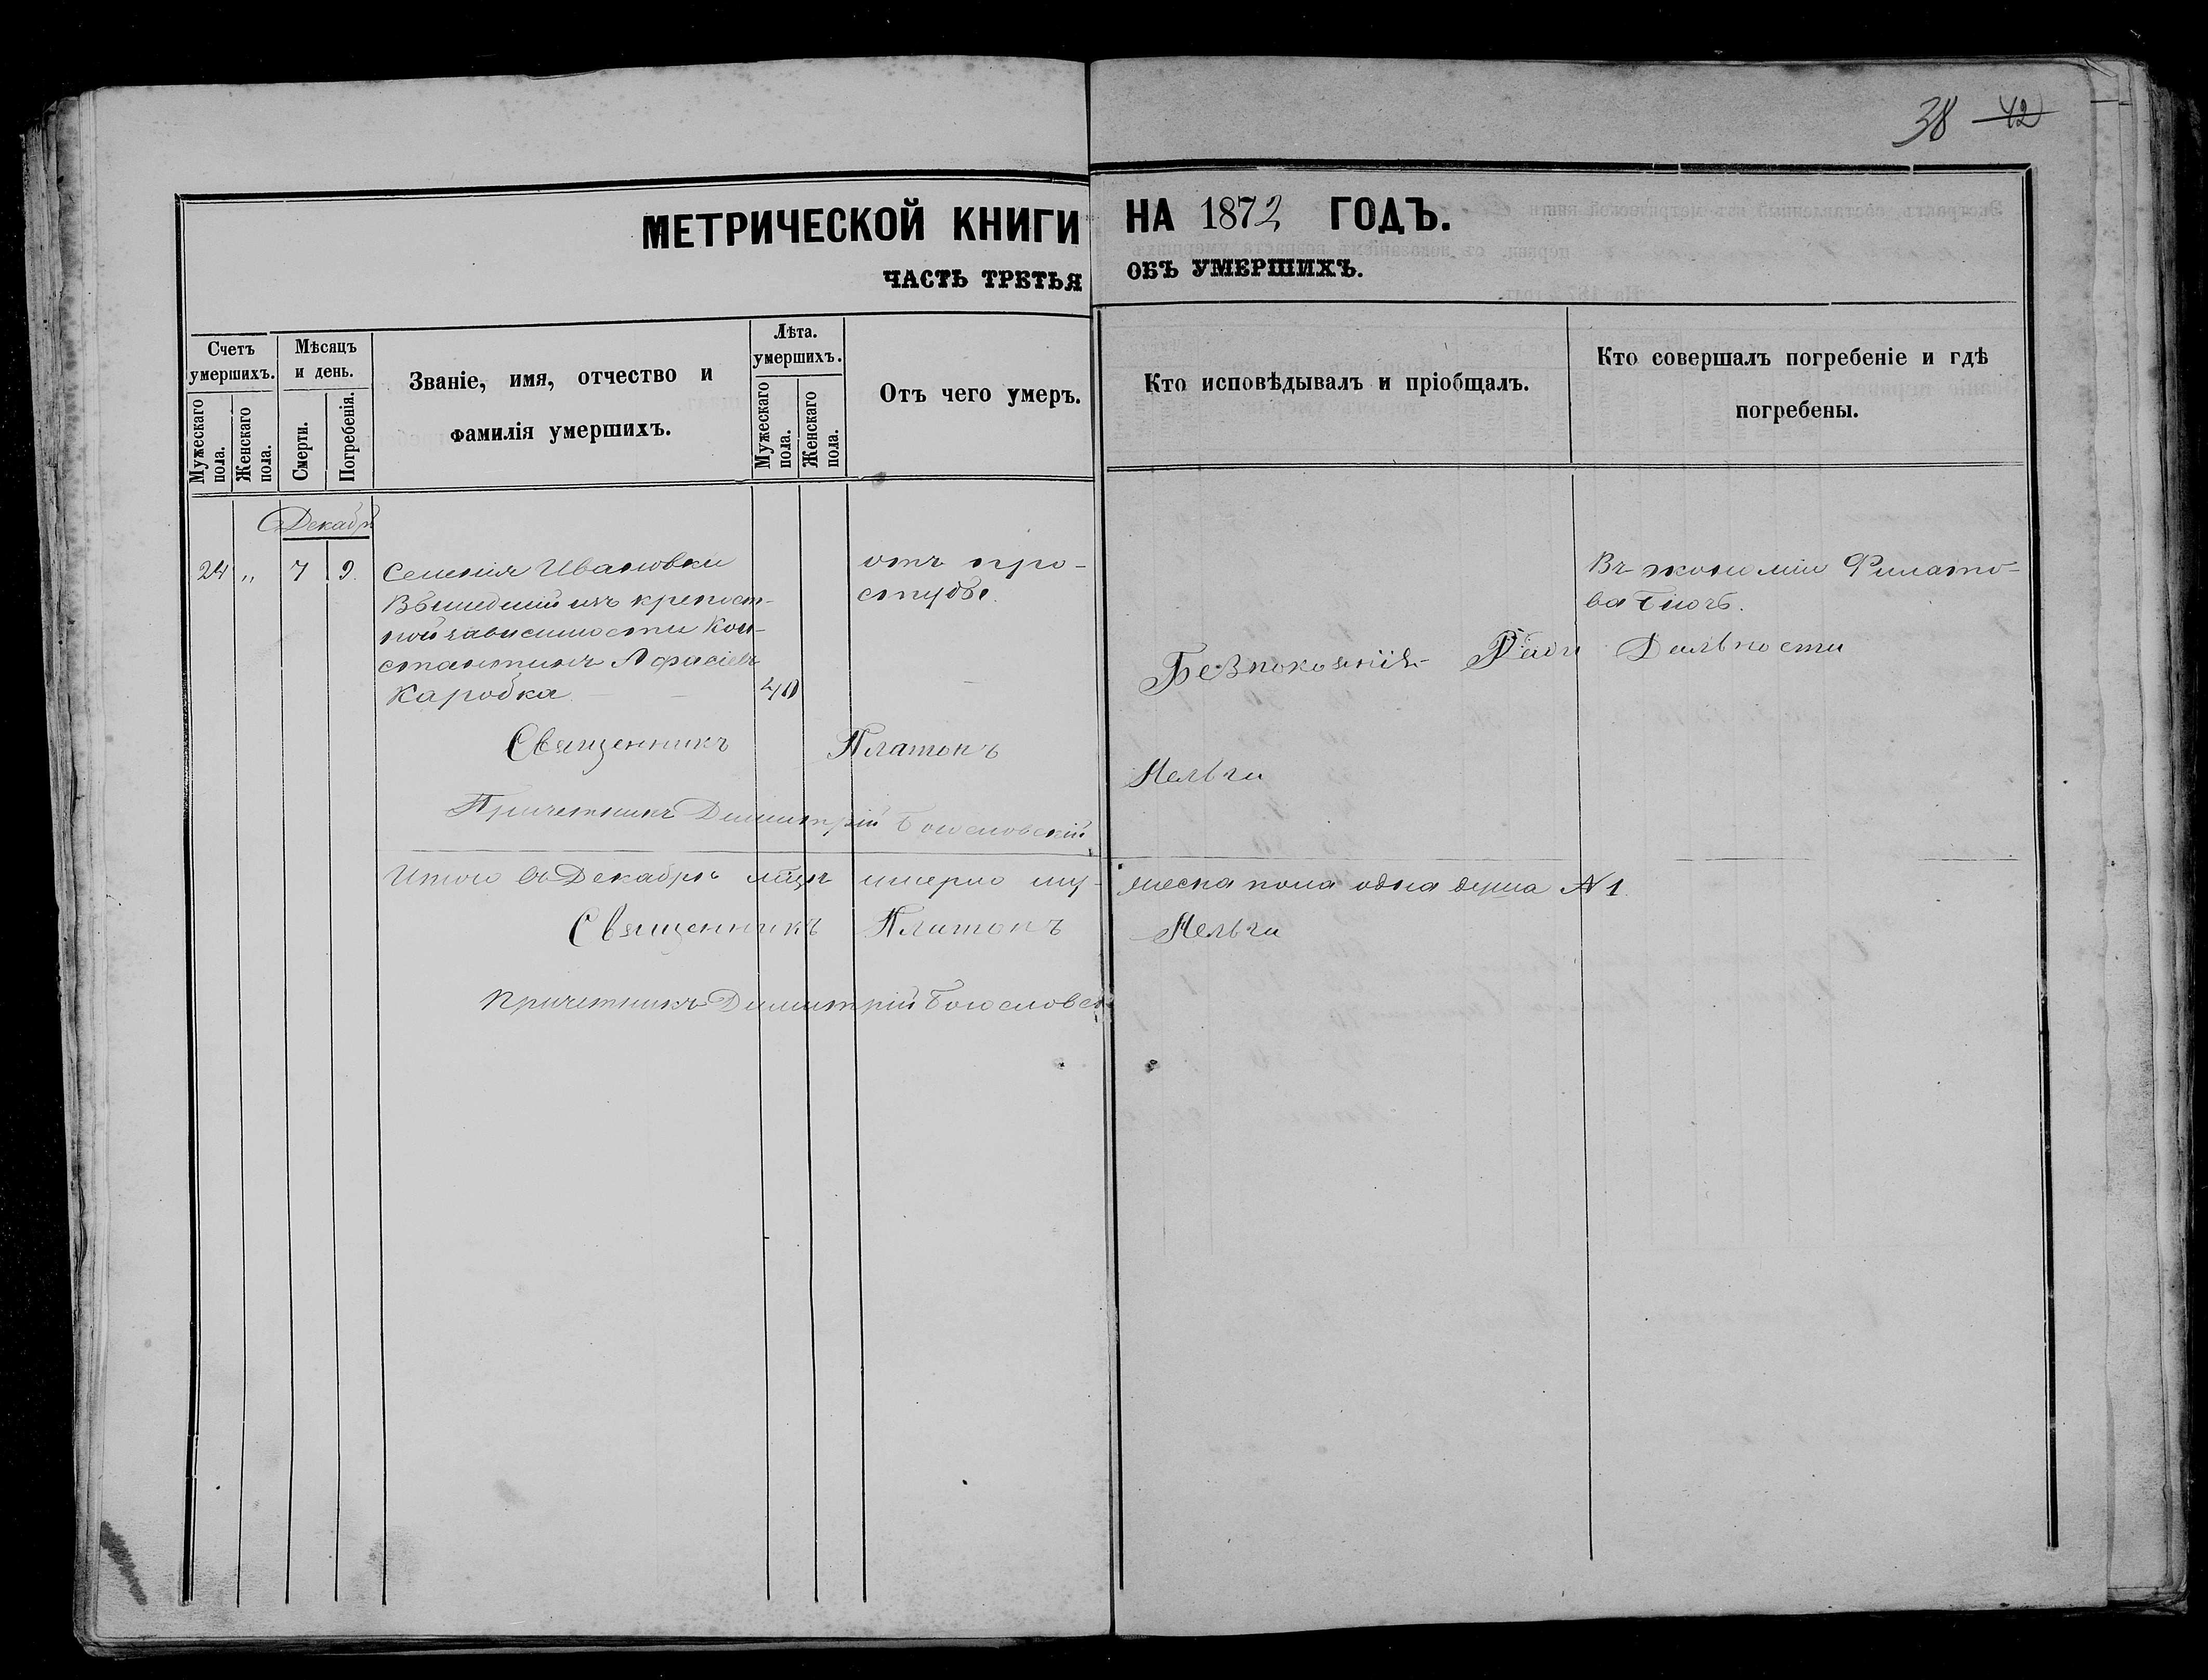 38 42
МЕТРИЧЕСКОЙ КНИГИ НА 1872 ГОДЪ.
ЧАСТЬ ТРЕТЬЯ ОБЪ УМЕРШИХЪ.
Счетъ умершихъ.
Мужескаго пола.
Женскаго пола.
Мѣсяцъ и день.
Смерти.
Погребенія.
Званіе, имя, отчество и
фамилія умершихъ.
Лѣта. умершихъ.
Мужескаго пола.
Женскаго пола.
Отъ чего умеръ.
Кто исповѣдывалъ и пріобщалъ.
Кто совершалъ погребеніе и гдѣ
погребены.
Декабрь
24 " 7 9. Селенія Ивановки
Вышедший изъ крепост-
ной зависимости Кон-
стантинъ Афасіевъ
Каробка 40
отъ про-
студы.
Безпокоянія Ради Дальности
Въ экономіи Филато-
ва
Священникъ Платонъ
Причетникъ Димитрій Богословскій
Итого въ Декабрѣ мцѣ умерло му-
жеска пола одна душа № 1
Священникъ Платонъ
Причетникъ Димитрій Богословск